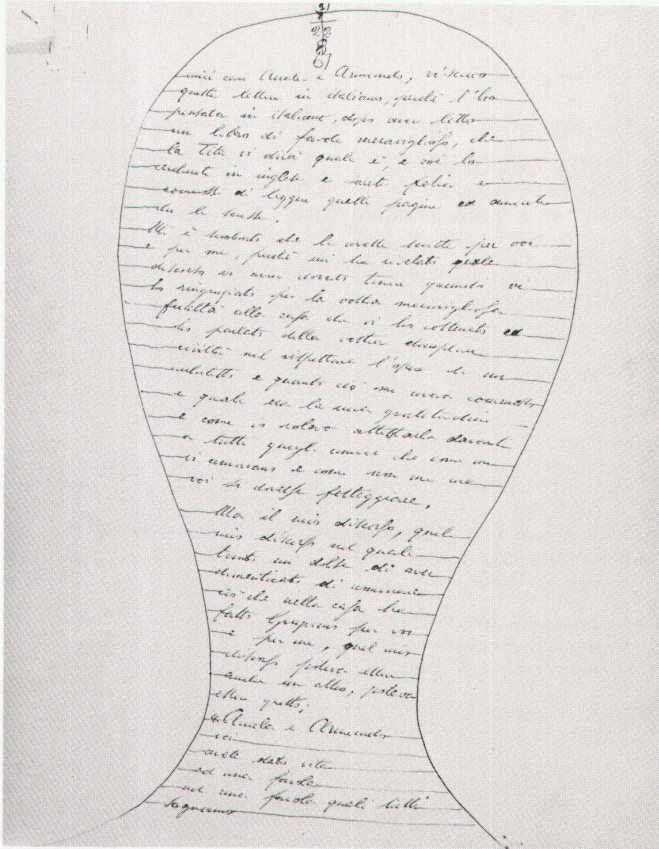 miei cari Anala e Armando, vi scrivo
questa lettera in italiano, perché l'ho
pensata in italiano, dopo aver letto
un libro di favole meraviglioso, che
la Tita vi dirà quale è, e voi lo
in inglese e sarete felici e
di leggere quelle pagine ed
Mi è sembrato che le avesse scritte per voi
e per me, perché mi ha rivelato quale
discorso io avrei dovuto tenere quando vi
ho ringraziato per la vostra meravigliosa
alla casa che vi ho costruito ed
ho parlato della vostra
civiltà nel rispettare l'opera di un
architetto e quanto ciò mi aveva commosso
e quale era la mia gratitudine
e come io volevo davanti
a tutti quegli amici che come me
vi amavano e come non me che
voi si dovesse festeggiare.
Ma il mio discorso, quel
mio discorso nel quale
di aver
dimenticato di
ciò che nella casa ha
fatto per voi
e per me, quel mio
discorso poteva essere
anche un altro, poteva
essere questo;
Anala e Armando
voi
avete dato vita
ad una favola
una favola quali tutti
sogniamo